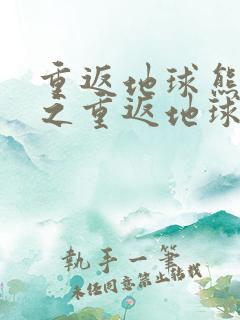 重返地球熊
之重返地球
執手一筆
未经同意禁止转载